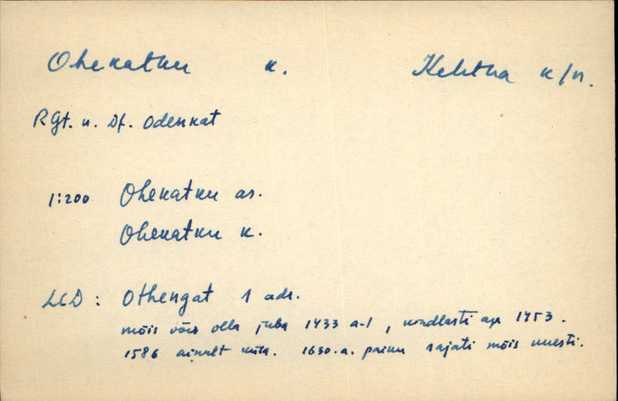 Ohekatku k. Kehtna k/n.
Rgt. u. Df. Odenkat
1:200 Ohekatku as.
Ohekatku k.
LCD : Othengat 1 adr.
mõis võis olla juba 1433 a-l, kindlasti aga 1453.
1586 ainult küla. 1630.a. paiku rajati mõis uuesti.